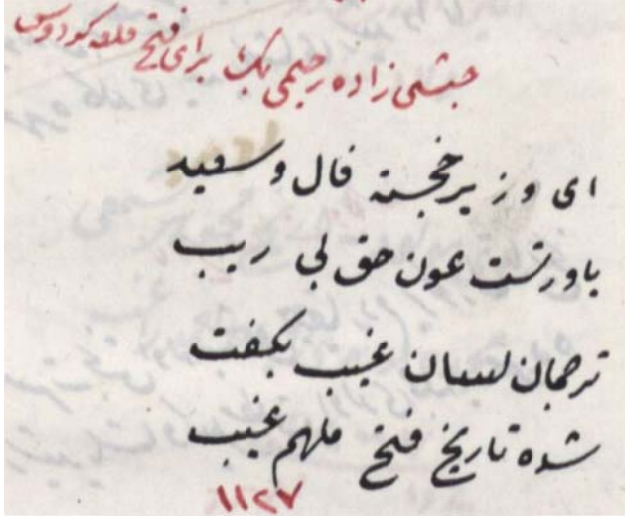 حبشی زاده رحیمی بك برای فتح قلعه كوردوس
ای وزیر خجسته فال و سعید
یاورتست عون حق بی ریب
ترجمان لسان غیب بكفت
شده تاریخ فتح ملهم غیب
١١٢٧